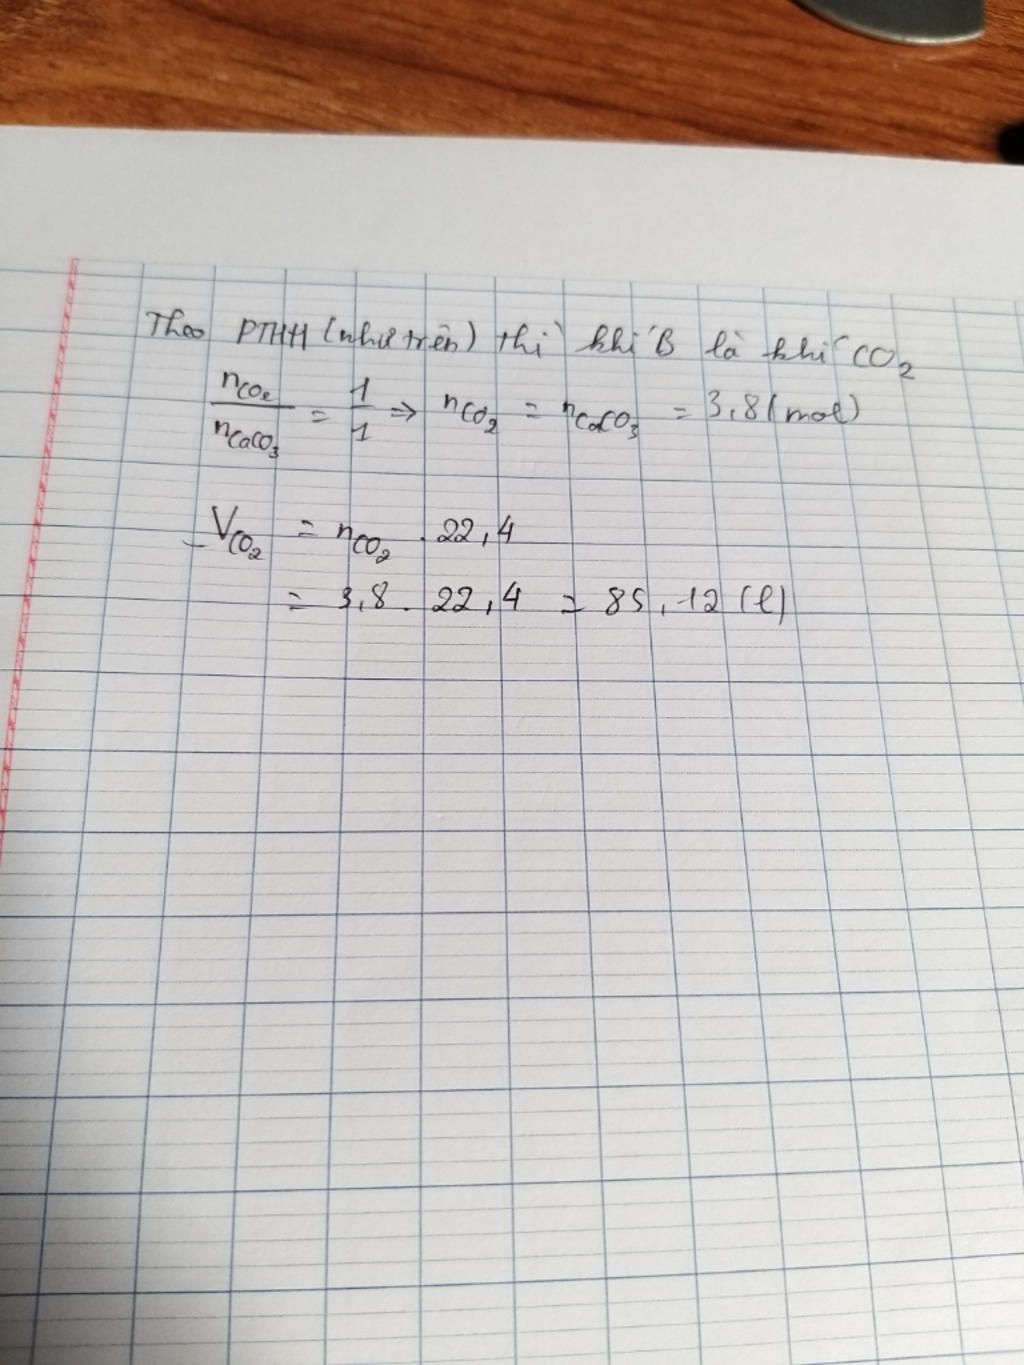 Theo PTHH (như trên) thì khí B là khí CO₂
nCO₂/nCaCO₃ = 1/1 ⇒ nCO₂ = nCaCO₃ = 3,8 (mol)
- VCO₂ = nCO₂ . 22,4
= 3,8 . 22,4 = 85,12 (l)